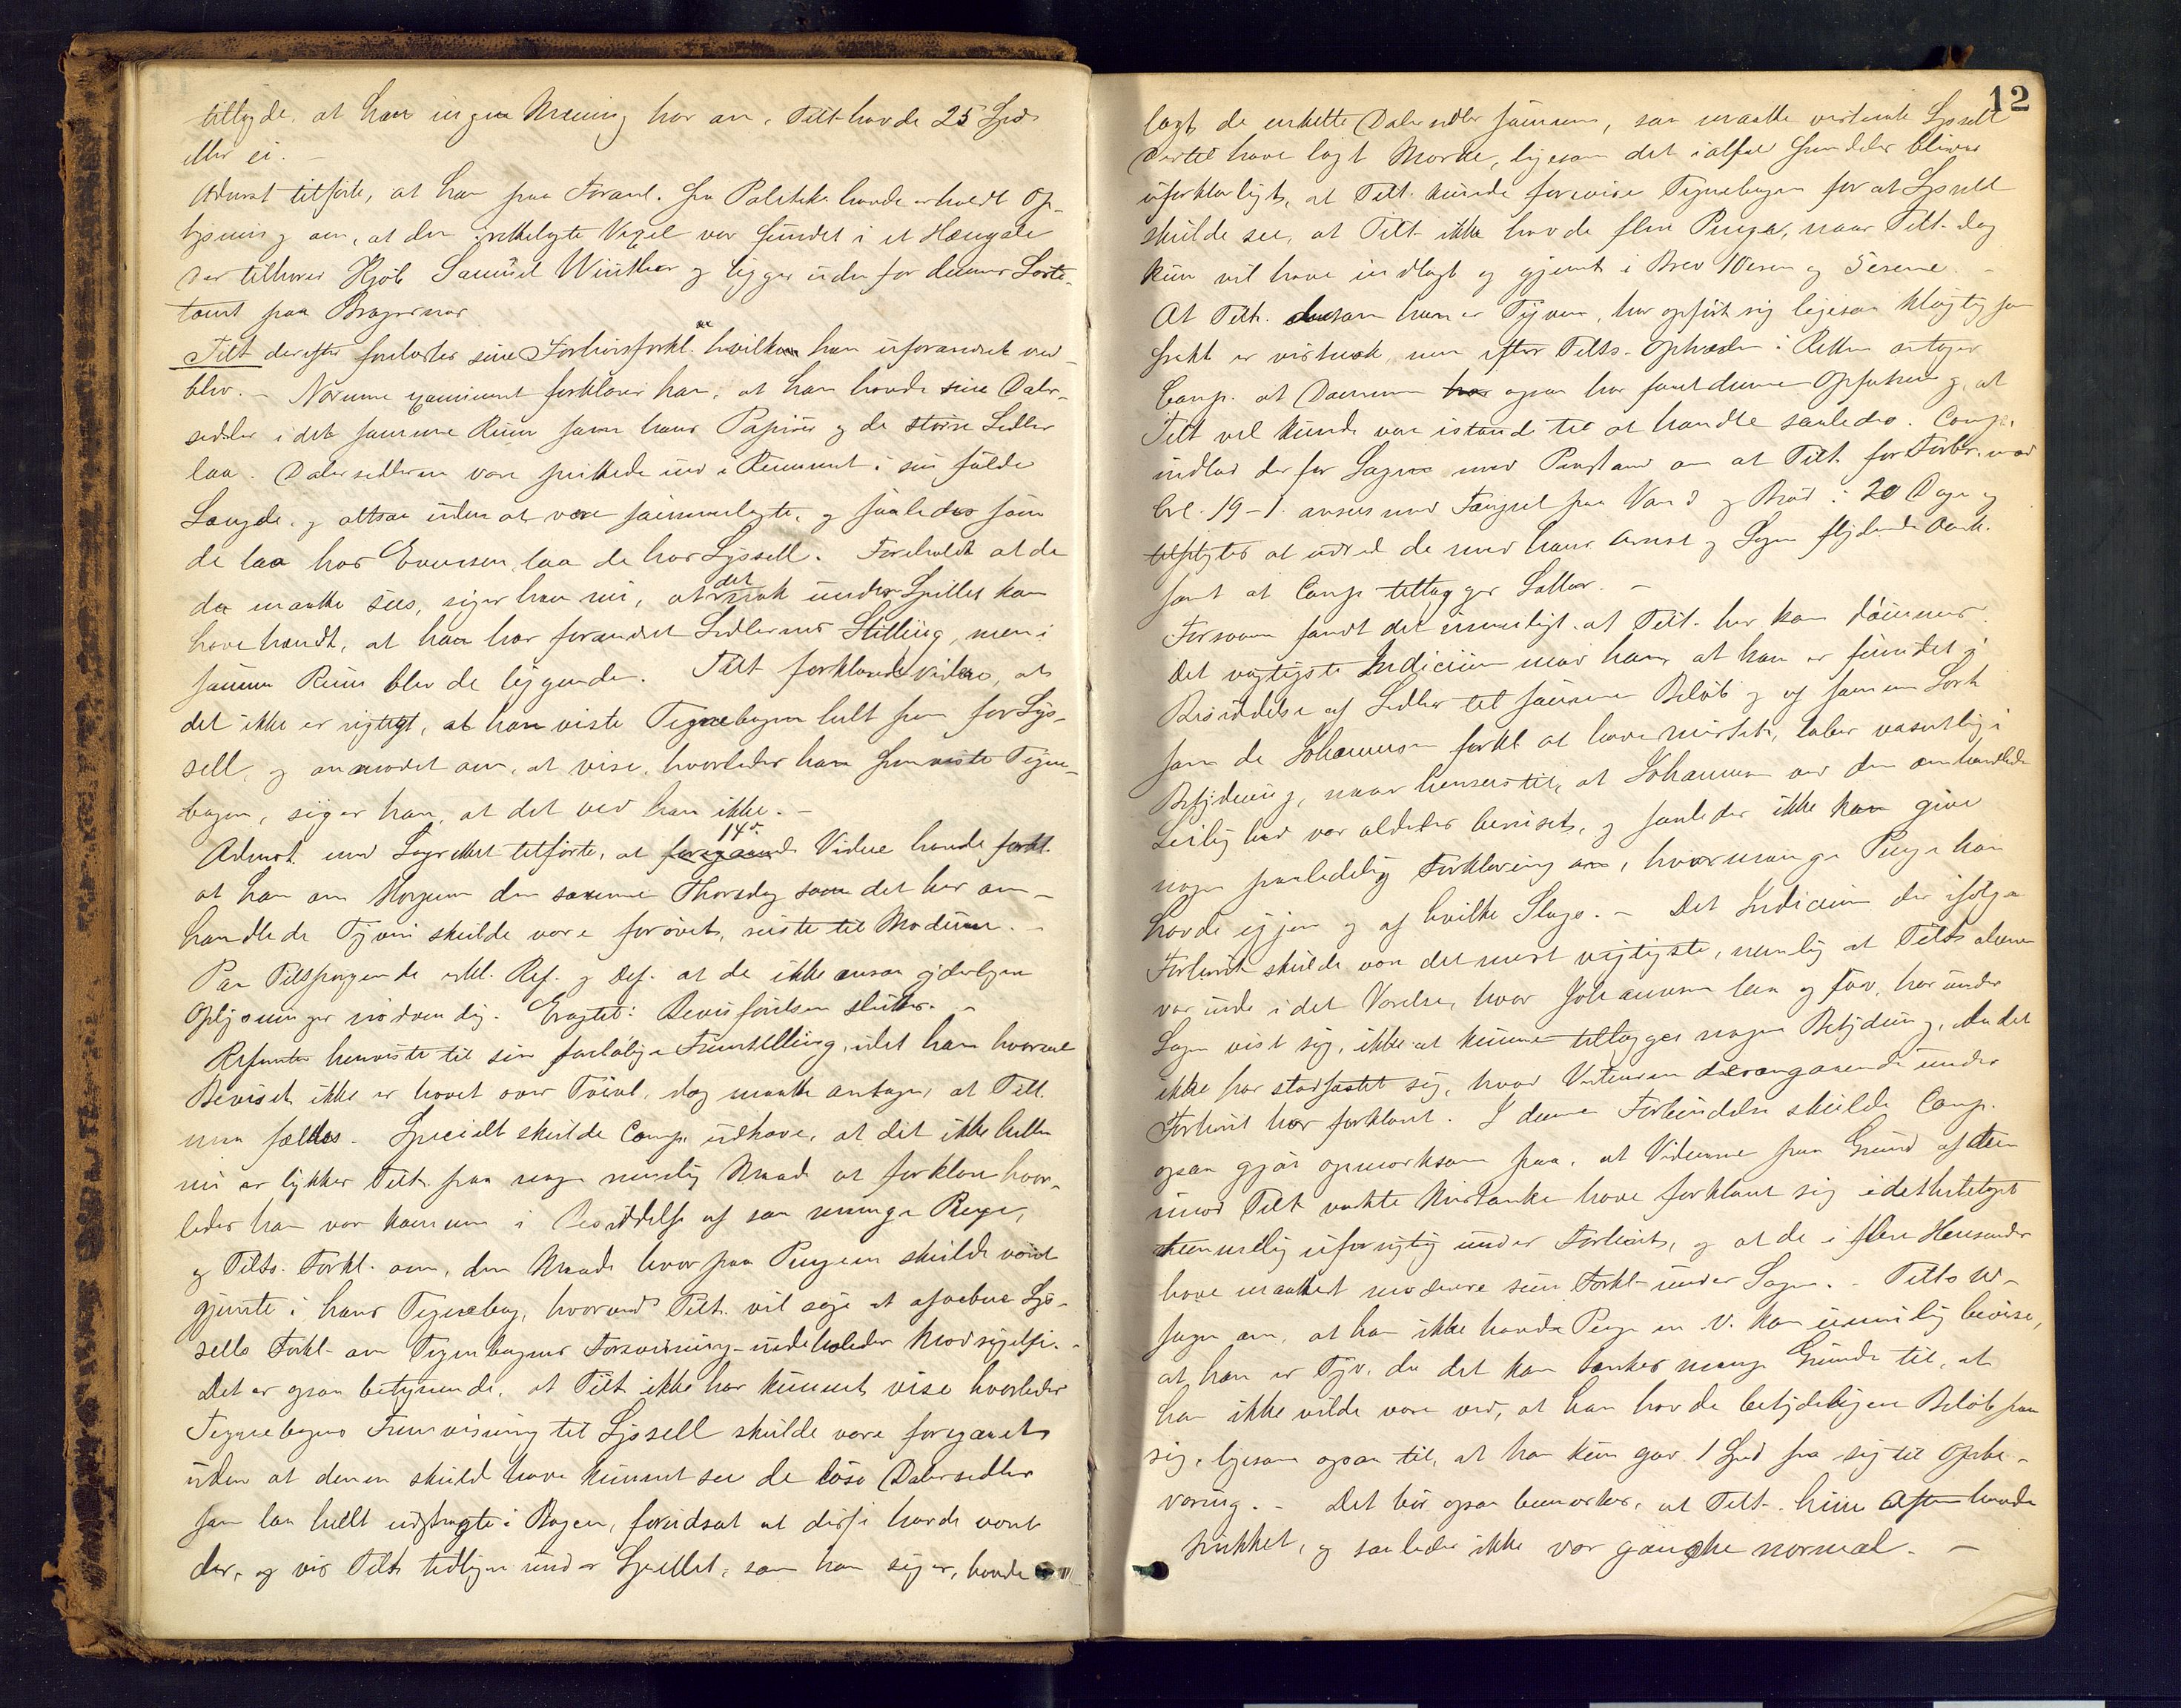 tilføjde, at han ingen Mening har om, Tilt. havde 25 Spd
eller ei. –
Aktmst tilførte, at han paa Foranl. fra Politiets havde erholdt Op-
lysning om, at den fremlagte Vexel var fundet i et Hængsle
der tilhører Kjøb Samuel Winther og ligger uden for dennes Løkke-
tomt paa Bragernæs
Tilt derefter forelæstes sine Forhørsforkl. hvilke han uforandret ved-
blev. – Nærmere examineret forklarer han, at han havde sine Daler-
sedler i det samme Rum som hans Papirer og de større Sedler
laa. Dalersedlerne vare puttede ind i Rummet i sin fulde
Længde, og altsaa uden at være sammenlagte, og saaledes som
de laa hos Evensen, laa de hos Lyssell. Foreholdt at de
da maatte sees, siger han nu, at det nok under Spillet kan
have hændt, at han har forandret Sedlernes Stilling, men i
samme Rum blev de liggende. Tilt forklarede videre, at
det ikke er rigtigt, at han viste Tegnebogen helt frem for Lys-
sell, og anmodet om, at vise, hvorledes han fremviste Tegne-
bogen, siger han, at det ved han ikke. –
Aktmst. med Lagrettet tilførte, at 14de Vidne havde forkl.
at han om Morgenen den samme Thorsdag som det her om-
handlede Tyveri skulde være forøvet, reiste til Modum. –
Paa Tilspørgende erkl. Ref. og Def. at de ikke ansaa yderligere
Oplysninger nødvendig. Eragtet: Bevisførelsen sluttes. –
Referenten henviste til sin foreløbige Fremstilling, idet han hvorvel
Beviset ikke er hævet over Tvivl, dog maatte antage, at Tilt.
maa fældes. Specielt skulde Comp. udhæve, at det ikke heller
nu er lykkes Tilt. paa nogen rimelig Maade at forklare hvor-
ledes han var kommen i Besiddelse af saa mange Penge,
og Tilts. Forkl. om, den Maade hvorpaa Pengene skulde været
gjemte i hans Tegnebog, hvorved Tilt. vil søge at afvæbne Lys-
sells Forkl. om Tegnebogens Forevisning – indeholder Modsigelse. –
Det er ogsaa betegnende, at Tilt ikke har kunnet vise hvorledes
Tegnebogens Fremvisning til Lyssell skulde være foregaaet
uden at denne skuld have kunnet see de løse Dalersedler
som laa helt udstragte i Bogen, forudsat at disse havde været
der, og vis Tilt tidligere under Spillet, som han siger, havde
12
lagt de enkelte Dalersedler sammen, saa maatte vistnok Lyssell
dertil have lagt Mærke, ligesom det ialfald fremdeles bliver
uforklarligt, at Tilt. kunde forevise Tegnebogen for at Lyssell
skulde see, at Tilt ikke havde flere Penge, naar Tilt. dog
kun vil have indlagt og gjemt i Brev 10erne og 5erne. –
At Tilt. dersom han er Tyven, har opført sig ligesaa kløgtig som
frækt er vistnok, men efter Tilts. Optræden i Retten antager
Comp. at Dommen ogsaa har faaet denne Opfatning, at
Tilt vel kunde være istand til at handle saaledes. Comp.
indlod derfor Sagen med Paastand om at Tilt. for Forbr. mod
Crl. 19-1. ansees med Fængsel paa Vand og Brød i 20 Dage og
tilpligtes at udrede de med hans Arrest og Sagen flydende Omk.
samt at Comp tillægges Sallær. –
Forsvaren fandt det umuligt at Tilt. her kan dømmes.
Det vigtigste Indicium mod ham, at han er fundet i
Besiddelse af Sedler til samme Beløb og af samme Sort
som de Johannesen forkl. at have mistet, taber væsentlig i
Betydning, naar henses til, at Johannesen ved den omhandlede
Leilighed var aldeles beruset, og saaledes ikke kan give
nogen paalidelig Forklaring om, hvormange Penge han
havde igjen og af hvilke Slags. – Det Indicium der ifølge
Forhøret skulde være det mest vigtigste, nemlig at Tilts alene
var inde i det Værelse, hvor Johannesen laa og sov, har under
Sagen vist sig, ikke at kunne tillægges nogen Betydning, da det
ikke har stadfæstet sig, hvad Vertinden derangaaende under
Forhøret har forklaret. I denne Forbindelse skulde Comp.
ogsaa gjøre opmærksom paa, at Vidnerne paa Grund af den
imod Tilt vakte Mistanke have forklaret sig idethele taget
temmelig uforsigtig under Forhøret, og at de i flere Henseender
have maattet modificere sine Forkl. under Sagen. – Tilts Ud-
sagn om, at han ikke havde Penge m. v. kan umulig bevise,
at han er Tyv, da det kan tænkes mange Grunde til, at
han ikke vilde være ved, at han havde betydeligere Beløb paa
sig, ligesom ogsaa til, at han kun gav 1 Spd fra sig til Opbe-
varing. – Det bør ogsaa bemærkes, at Tilt. hiin Aften havde
drukket, og saaledes ikke var ganske normal. –